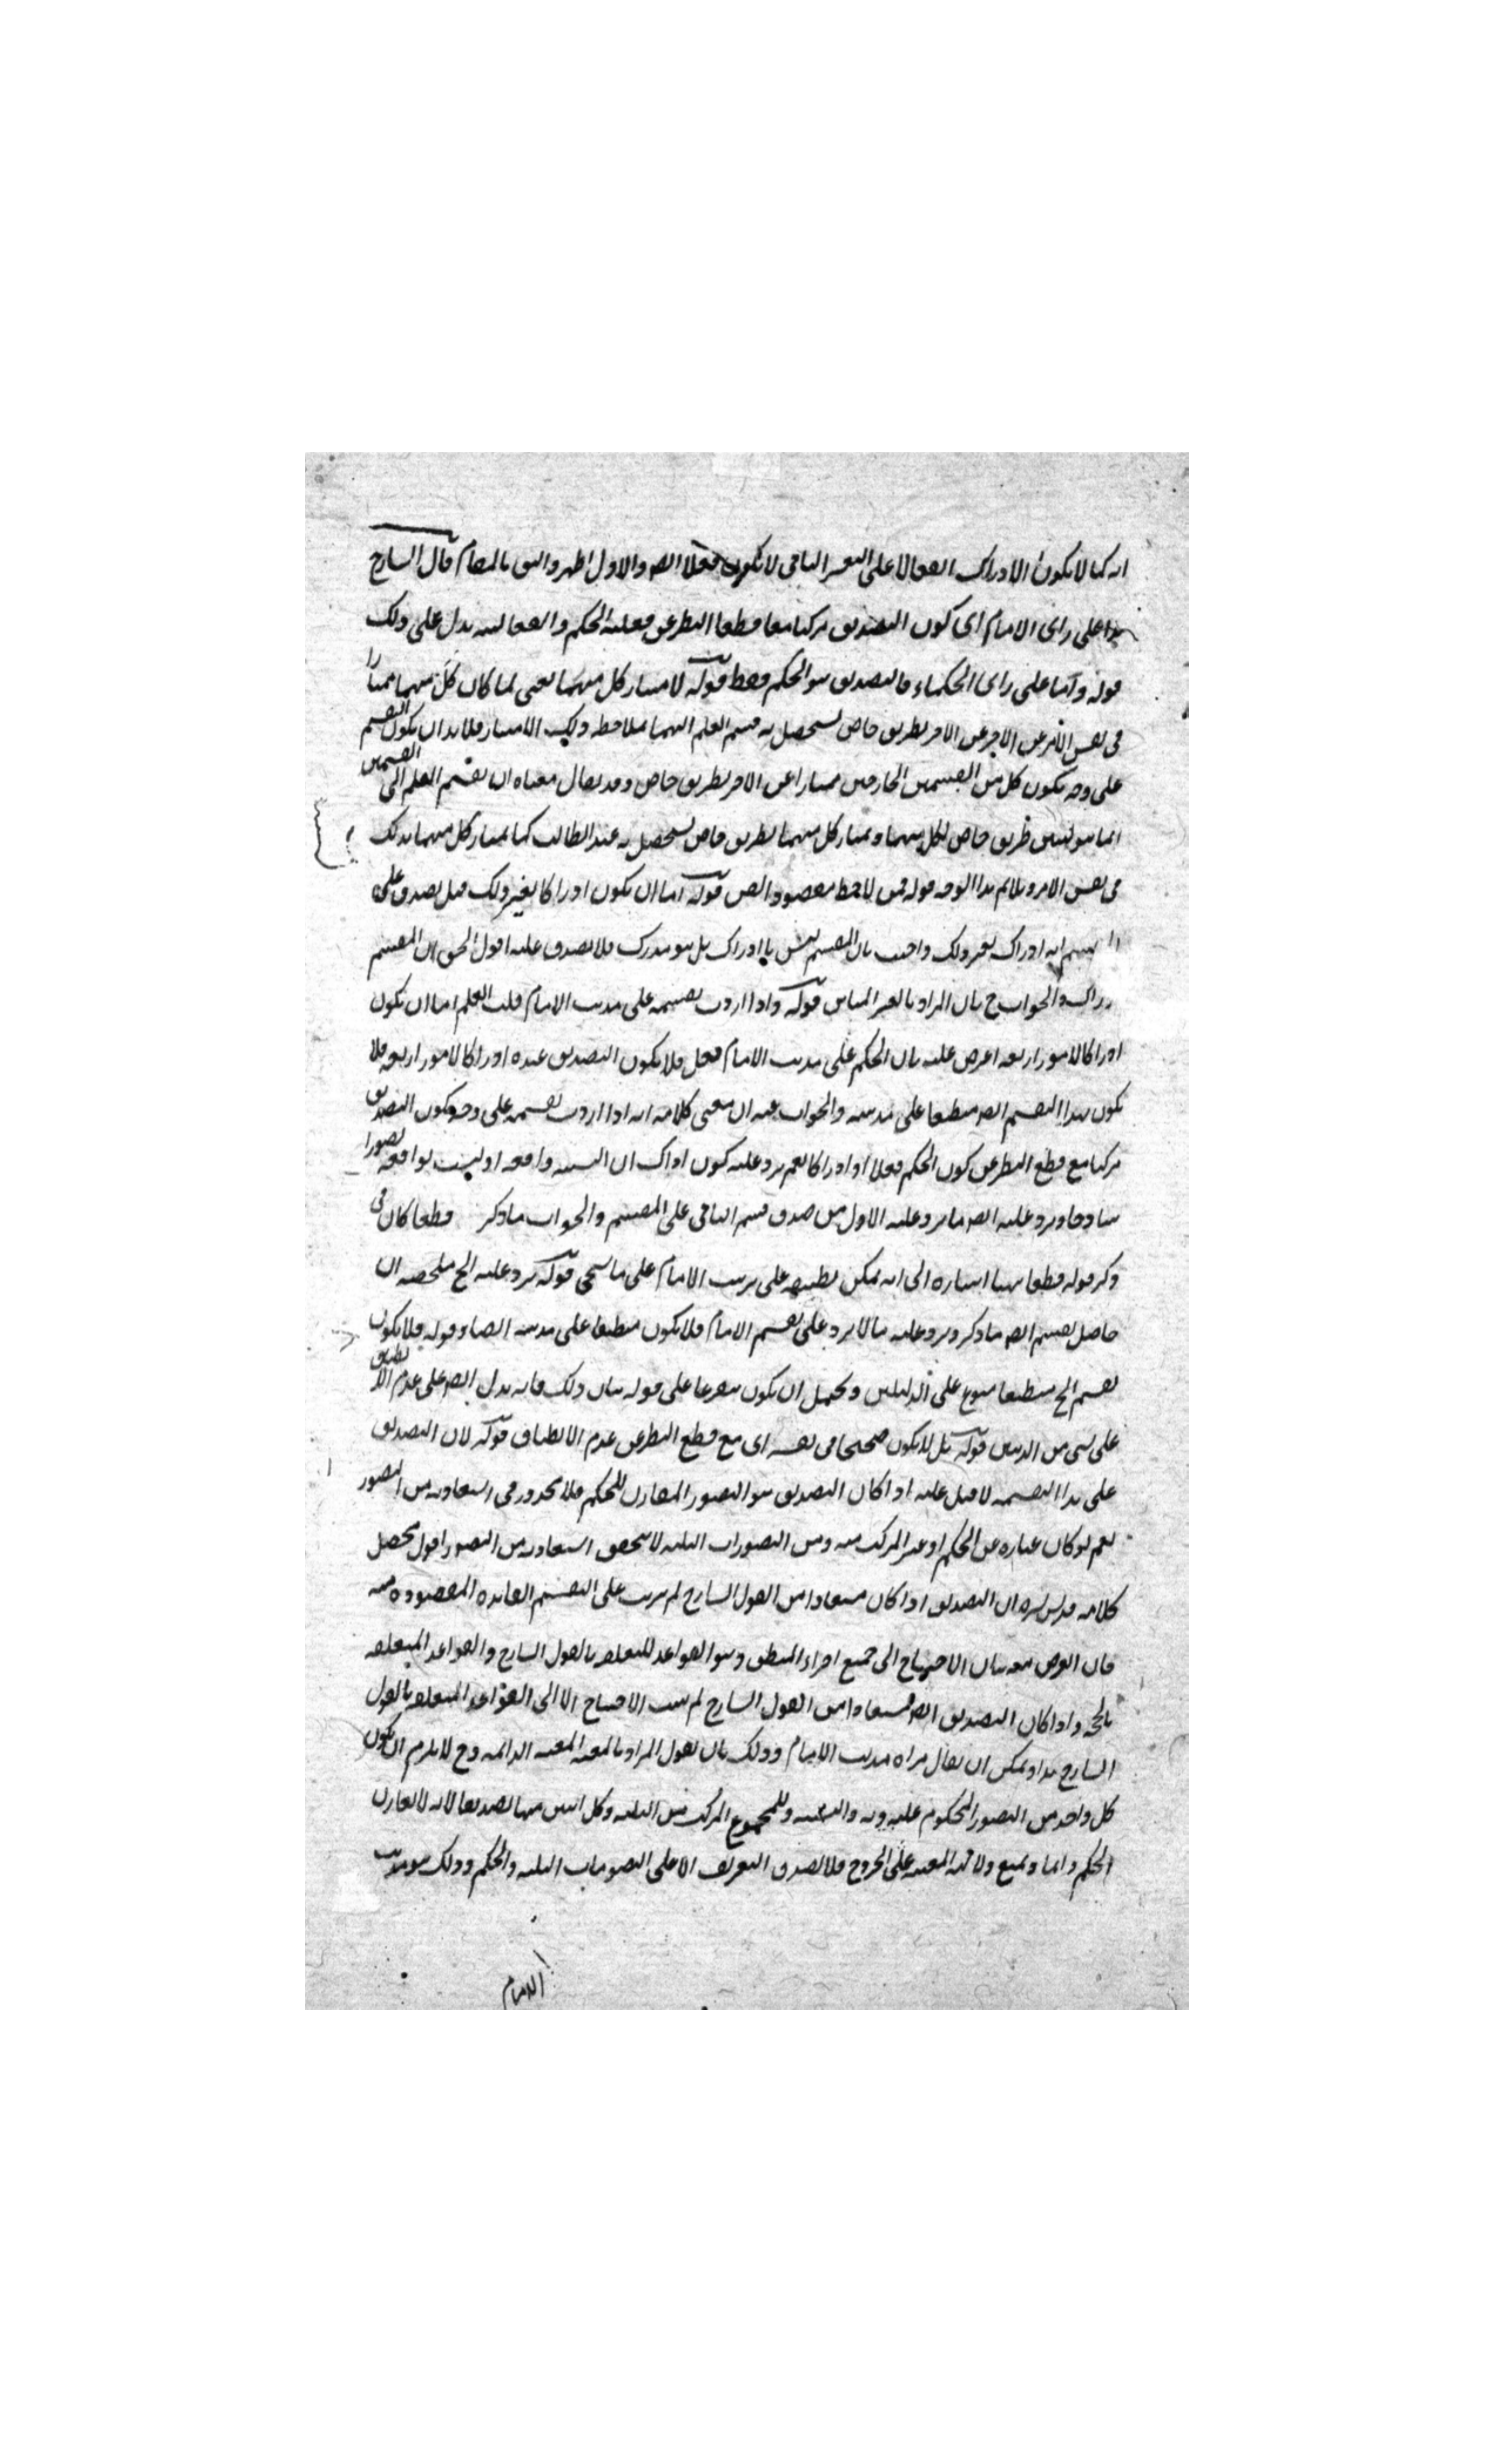 انه كما لا يكون الادراك انفعالا على التفسير الثاني لا يكون فعلا ايضا والاول اظهر واليق بالمقام قال الشارح
هذا على راى الامام اى كون التصديق مركبا معا قطعا النظر عن فعلية الحكم وانفعاليته يدل على ذلك
قوله واما على راى الحكماء فالتصديق هو الحكم فقط قوله لامتياز كل منهما يعنى لما كان كل منهما ممتازا
فى نفس الامر عن الاخر بطريق خاص يستحصل به قسم العلم اليهما ملاحظة ذلك الامتياز فلا بد ان يكون التقسيم
على وجه يكون كل من القسمين الخارجين ممتازا عن الاخر بطريق خاص وقد يقال معناه ان تقسيم العلم الى القسمين
انما هو ليتبين طريق خاص لكل منهما ويمتاز كل منهما بطريق خاص يستحصل به عند الطالب كما يمتاز كل منهما بذلك
فى نفس الامر ويلائم هذا الوجه قوله فمن لاحظ مقصود القوم قوله اما ان يكون ادراكا لغير ذلك قيل يصدق على
انه ادراك لغير ذلك واجيب بان المقسم ليس بادراك بل هو مدرك فلا يصدق عليه اقول الحق ان المقسم
ادراك والجواب ح بان المراد بالغير المباين قوله واذا اردت تقسيمه على مذهب الامام قلت العلم اما ان يكون
ادراكا لامور اربعة اعترض عليه بان الحكم على مذهب الامام فعل فلا يكون التصديق عنده ادراكا لامور اربعة فلا
يكون هذا التقسيم ايضا منطبقا على مذهبه والجواب عنه ان معنى كلامه انه اذا اردت تقسيمه على وجه يكون التصديق
مركبا مع قطع النظر عن كون الحكم فعلا او ادراكا نعم يرد عليه كون ادراك ان النسبة واقعة او ليست بواقعة تصورا
ساذجا ويرد عليه ايضا ما يرد على الاول من صدق قسم الثاني على المقسم والجواب ما ذكر قطعا كان فى
ذكر قوله قطعا هنا اشارة الى انه يمكن تطبيقه على مذهب الامام على ما سيجئ قوله يرد عليه الخ ملخصه ان
حاصل تقسيم القوم ما ذكر ويرد عليه ما لا يرد على تقسيم الامام فلا يكون منطبقا على مذهبه ايضا وقوله فلا يكون
تقسيم الخ منطبقا متفرع على الدليلين ويحتمل ان يكون متفرعا على قوله بيان ذلك فانه يدل ايضا على عدم الانطباق
على شئ من المذهبين قوله بل لا يكون صحيحا فى نفسه اى مع قطع النظر عن عدم الانطباق قوله لان التصديق
على هذا التقسيم لا قيل عليه اذا كان التصديق هو التصور المقارن للحكم فلا محذور فى استفادته من التصور
نعم لو كان عبارة عن الحكم او عن المركب منه ومن التصورات الثلثة لا يتحقق استفادته من التصور اقول محصل
كلامه قدس سره ان التصديق اذا كان مستفادا من القول الشارح لم يترتب على التقسيم الفائدة المقصودة منه
فان الغرض منه بيان الاحتياج الى جميع اجزاء المنطق وهو القواعد المتعلقة بالقول الشارح والقواعد المتعلقة
بالحجة واذا كان التصديق ايضا مستفادا من القول الشارح لم يثبت الاحتياج الا الى القواعد المتعلقة بالقول
الشارح هذا ويمكن ان يقال مراده مذهب الامام وذلك بان يقول المراد بالمعية المعية الدائمة وح لا يلزم ان يكون
كل واحد من التصور المحكوم عليه وبه والنسبة وللمجموع المركب من الثلثة وكل اثنين منها تصديقا لانه لا يقارن
الحكم دائما ويمنع دلالة المعية على الخروج فلا يصدق التعريف الا على التصورات الثلثة والحكم وذلك هو مذهب
الامام